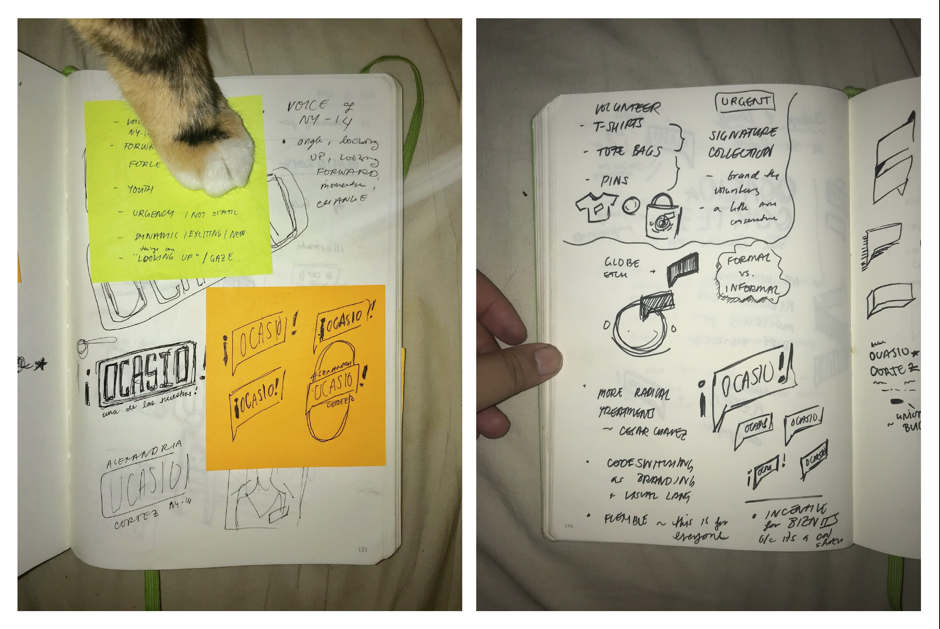 NY-
FORWA
FORCE
- YOUTH
- URGENCY / NOT STATIC
- DYNAMIC / EXCITING / NEW
- "LOOKING UP" / GAZE
VOICE of
NY-14
• angle, looking
UP, looking
FORWARD,
momentum,
CHANGE
¡OCASIO!
una de las nuestras!
ALEXANDRIA
OCASIO!
CORTEZ NY-14
¡OCASIO!
¡OCASIO!
¡OCASIO!
OCASIO!
CORTEZ
VOLUNTEER
- T-SHIRTS
- TOTE BAGS
- PINS
P
URGENT
SIGNATURE
COLLECTION
- brand the
volunteers
- a little more
conservative
GLOBE
ETCH
FORMAL
VS.
INFORMAL
• MORE RADICAL
TREATMENT
~ CESAR CHAVEZ
¡OCASIO!
OCASIO
OCASIO
• CODESWITCHING
as BRANDING
+ VISUAL LANG
• FLEXIBLE ~ this is for
everyone
• INCENTIVE
for
b/c it's a
OCASIO
CORTEZ
~ UNION
BUG